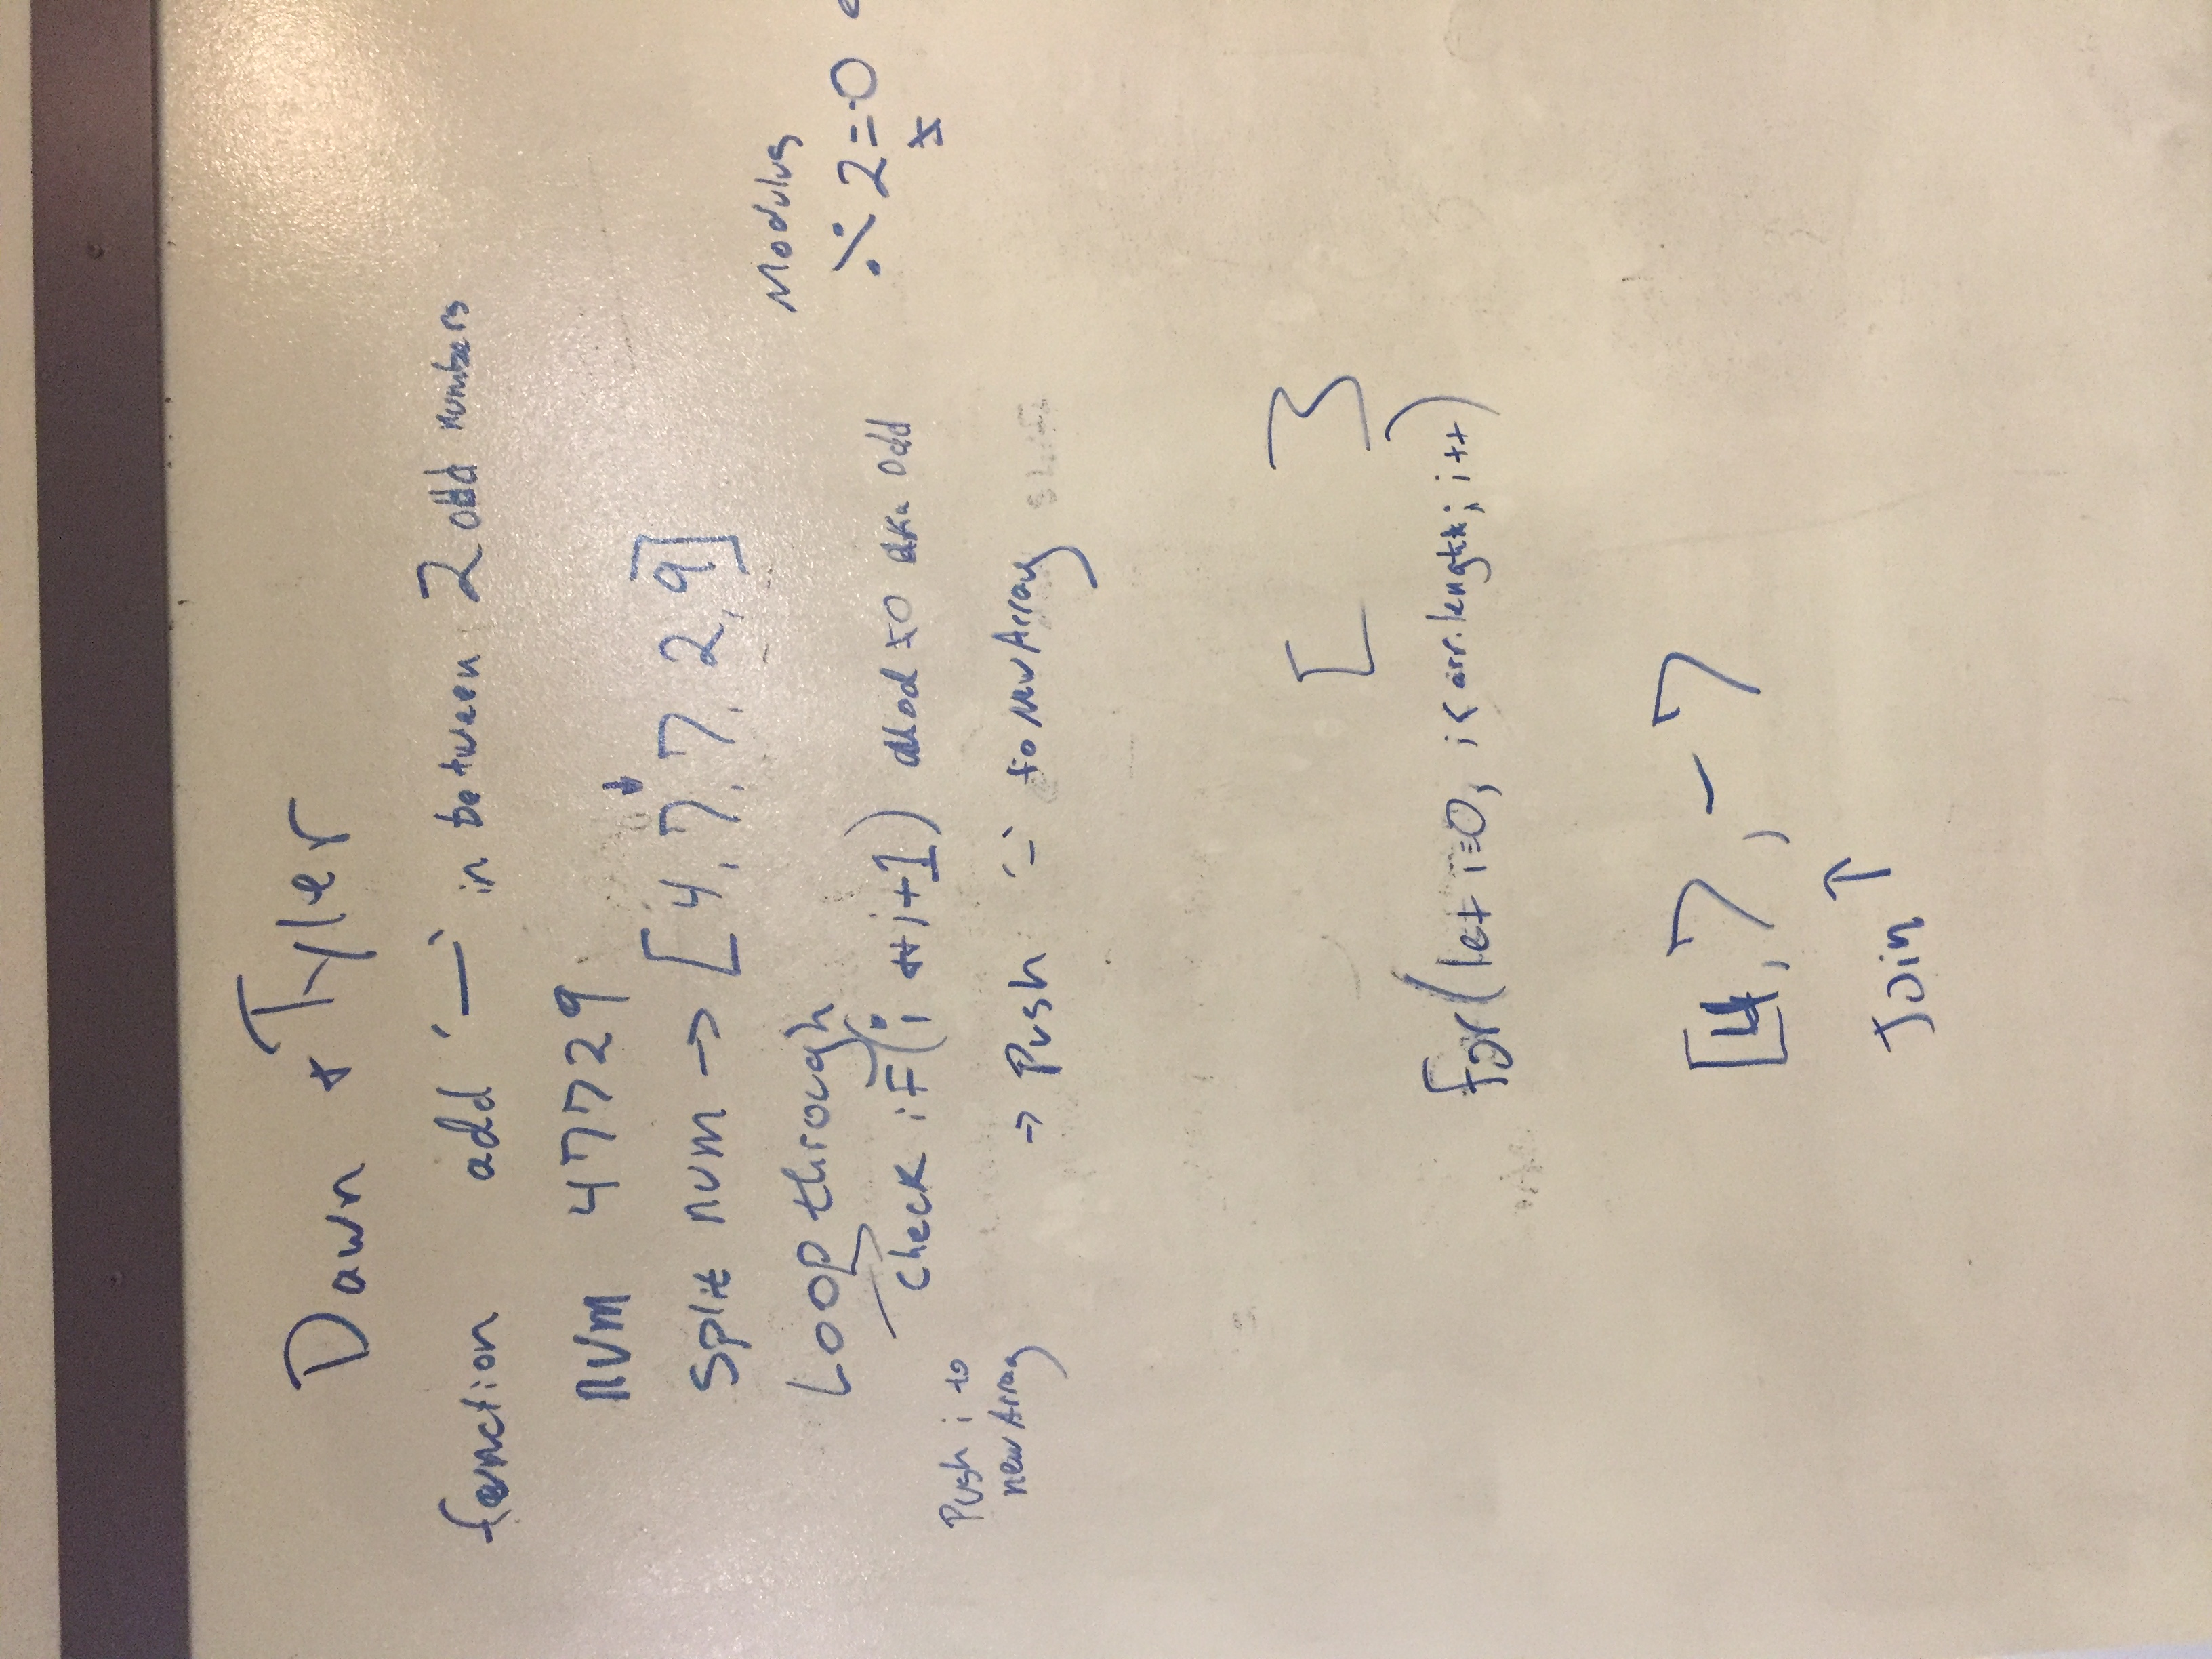 Dawn + Tyler
function add '—' in between 2 odd numbers
num 47729
↓
Split num → [4, 7, 7, 2, 9]
Loop through
Modulus
÷ 2 = 0
≠
check if (i # i+1) Mod ≠ 0 aka odd
Push i to
new Array
→ Push '-' to New Array
[ ]
for (let i=0, i < arr.length; i++)
[4, 7, - 7
Join ↑